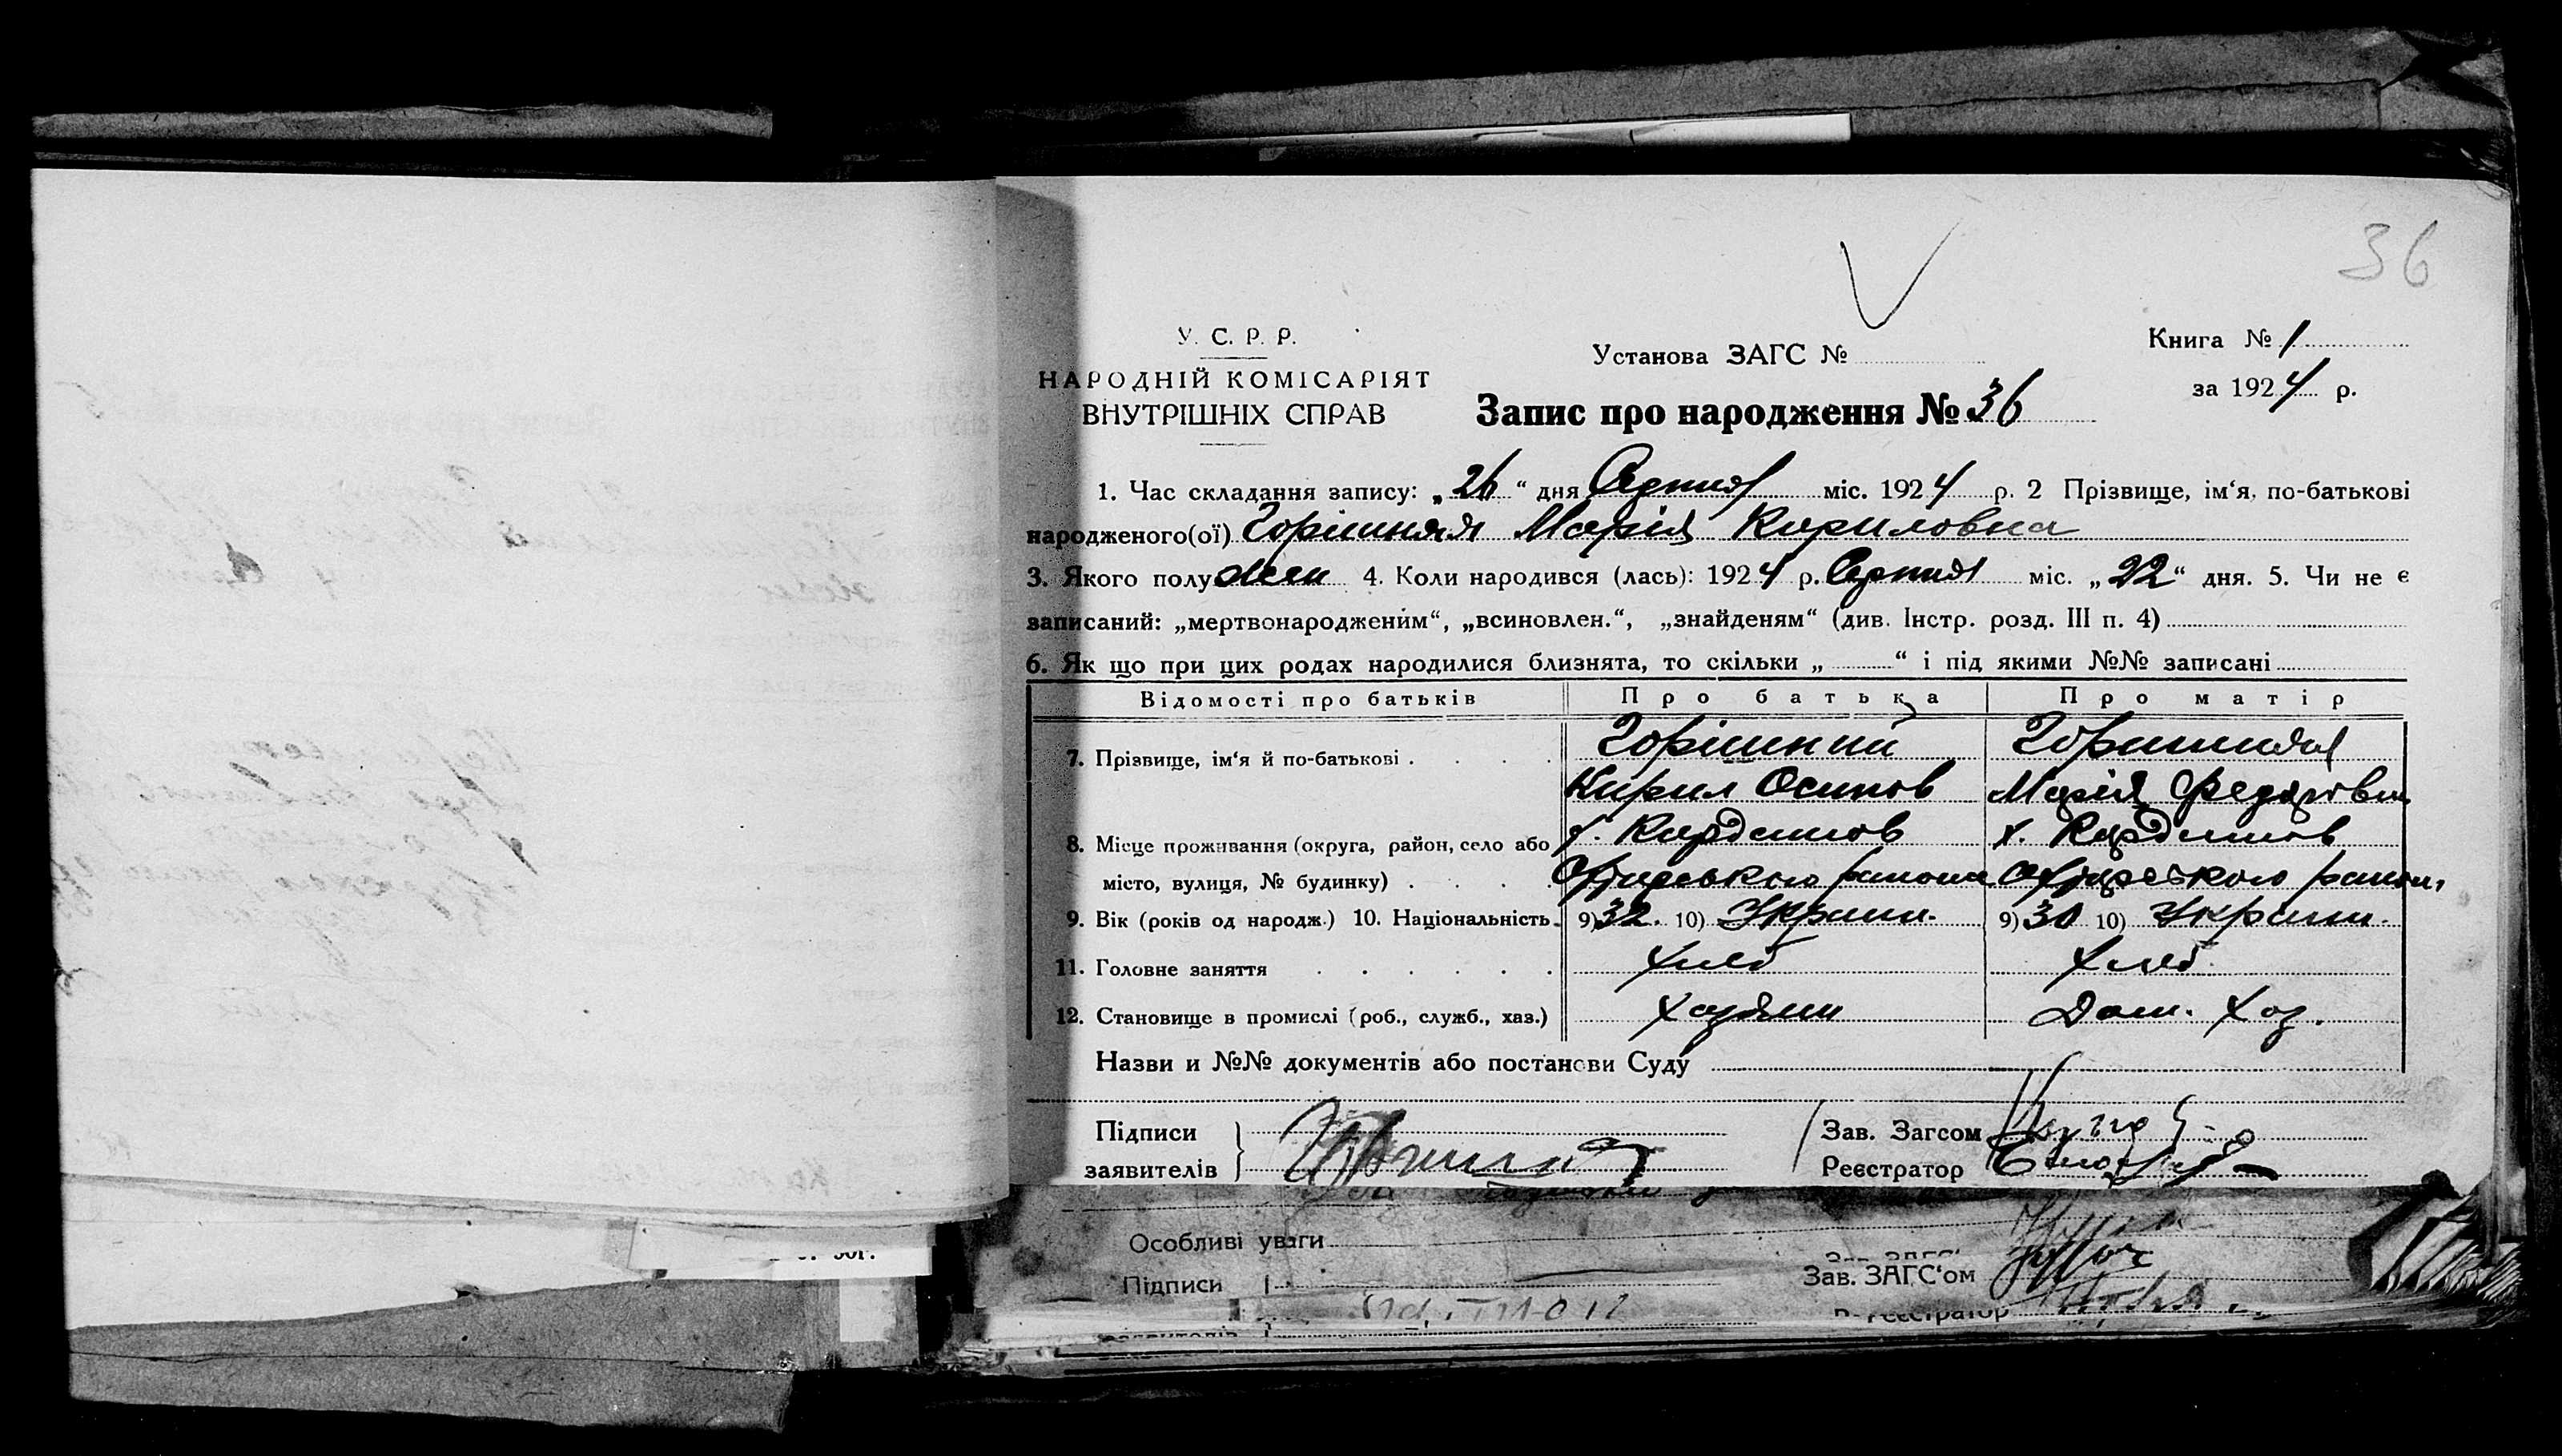 36
У. С. Р. Р.
НАРОДНІЙ КОМІСАРІЯТ
ВНУТРІШНІХ СПРАВ
Установа ЗАГС №
Книга № 1
за 1924 р.
Запис про народження № 36
1. Час складання запису: „26“ дня Серпня міс. 1924 р. 2 Прізвище, ім‘я, по-батькові
народженого(ої) Горішняя Марія Кириловна
3. Якого полу жен 4. Коли народився (лась): 1924 р. Серпня міс. „22“ дня. 5. Чи не є
записаний: „мертвонародженим“, „всиновлен.“, „знайденям“ (див. Інстр. розд. III п. 4)
6. Як що при цих родах народилися близнята, то скільки „ “ і під якими №№ записані
Відомості про батьків Про батька Про матір
7. Прізвище, ім‘я й по-батькові Горішний Горишняя
Кирил Осипов Марія Федоровна
8. Місце проживання (округа, район, село або х. х.
місто, вулиця, № будинку) района района
9. Вік (років од народж.) 10. Національність 9) 32. 10) Украин. 9) 30 10) Украин.
11. Головне заняття Хлеб Хлеб
12. Становище в промислі (роб., служб., хаз.) Хазяин Дом. Хоз.
Назви и №№ документів або постанови Суду
Підписи
заявителів
Зав. Загсом
Реєстратор
Особливі уваги
Зав. ЗАГС‘ом
Підписи
Реєстратор
заявителів